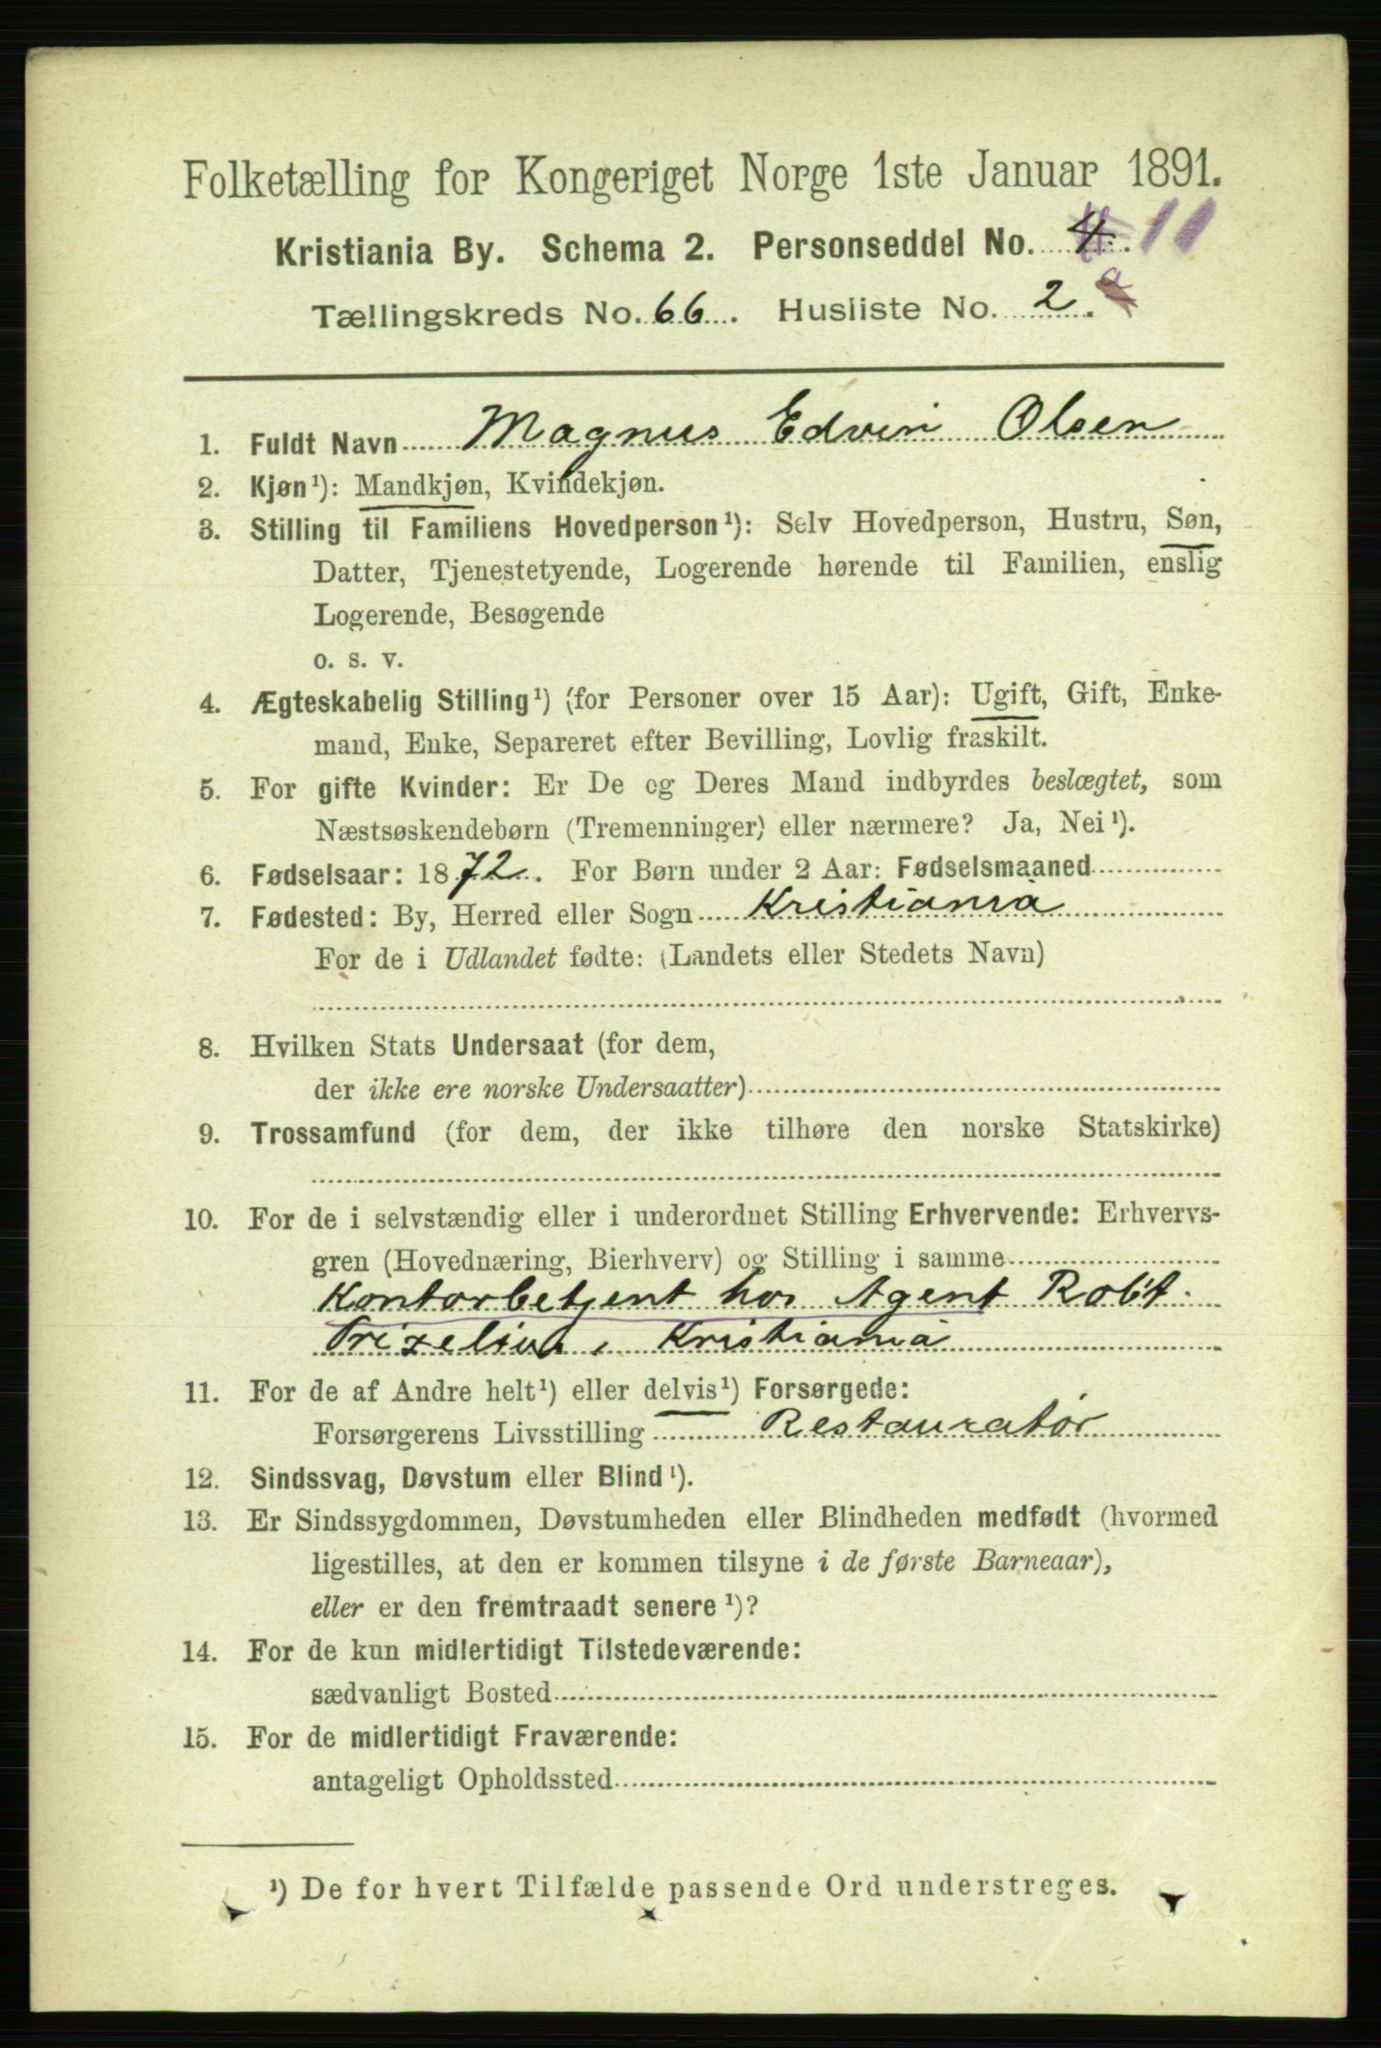 Folketælling for Kongeriget Norge 1ste Januar 1891.
Kristiania By. Schema 2. Personseddel No. 4. 10
Tællingskreds No. 66. Husliste No. 2. a
1. Fuldt Navn Magnus Edvin Olsen
2. Kjøn¹): Mandkjøn, Kvindekjøn.
3. Stilling til Familiens Hovedperson¹): Selv Hovedperson, Hustru, Søn,
Datter, Tjenestetyende, Logerende hørende til Familien, enslig
Logerende, Besøgende
o. s. v.
4. Ægteskabelig Stilling¹) (for Personer over 15 Aar): Ugift, Gift, Enke-
mand, Enke, Separeret efter Bevilling, Lovlig fraskilt.
5. For gifte Kvinder: Er De og Deres Mand indbyrdes beslægtet, som
Næstsøskendebørn (Tremenninger) eller nærmere? Ja, Nei¹).
6. Fødselsaar: 1872. For Børn under 2 Aar: Fødselsmaaned
7. Fødested: By, Herred eller Sogn Kristiania
For de i Udlandet fødte: (Landets eller Stedets Navn)
8. Hvilken Stats Undersaat (for dem,
der ikke ere norske Undersaatter)
9. Trossamfund (for dem, der ikke tilhøre den norske Statskirke)
10. For de i selvstændig eller i underordnet Stilling Erhvervende: Erhvervs-
gren (Hovednæring, Bierhverv) og Stilling i samme
Kontorbetjent hos Agent Rob't.
Kristiania
11. For de af Andre helt¹) eller delvis¹) Forsørgede:
Forsørgerens Livsstilling Restauratör
12. Sindssvag, Døvstum eller Blind¹).
13. Er Sindssygdommen, Døvstumheden eller Blindheden medfødt (hvormed
ligestilles, at den er kommen tilsyne i de første Barneaar),
eller er den fremtraadt senere¹)?
14. For de kun midlertidigt Tilstedeværende:
sædvanligt Bosted
15. For de midlertidigt Fraværende:
antageligt Opholdssted
¹) De for hvert Tilfælde passende Ord understreges.